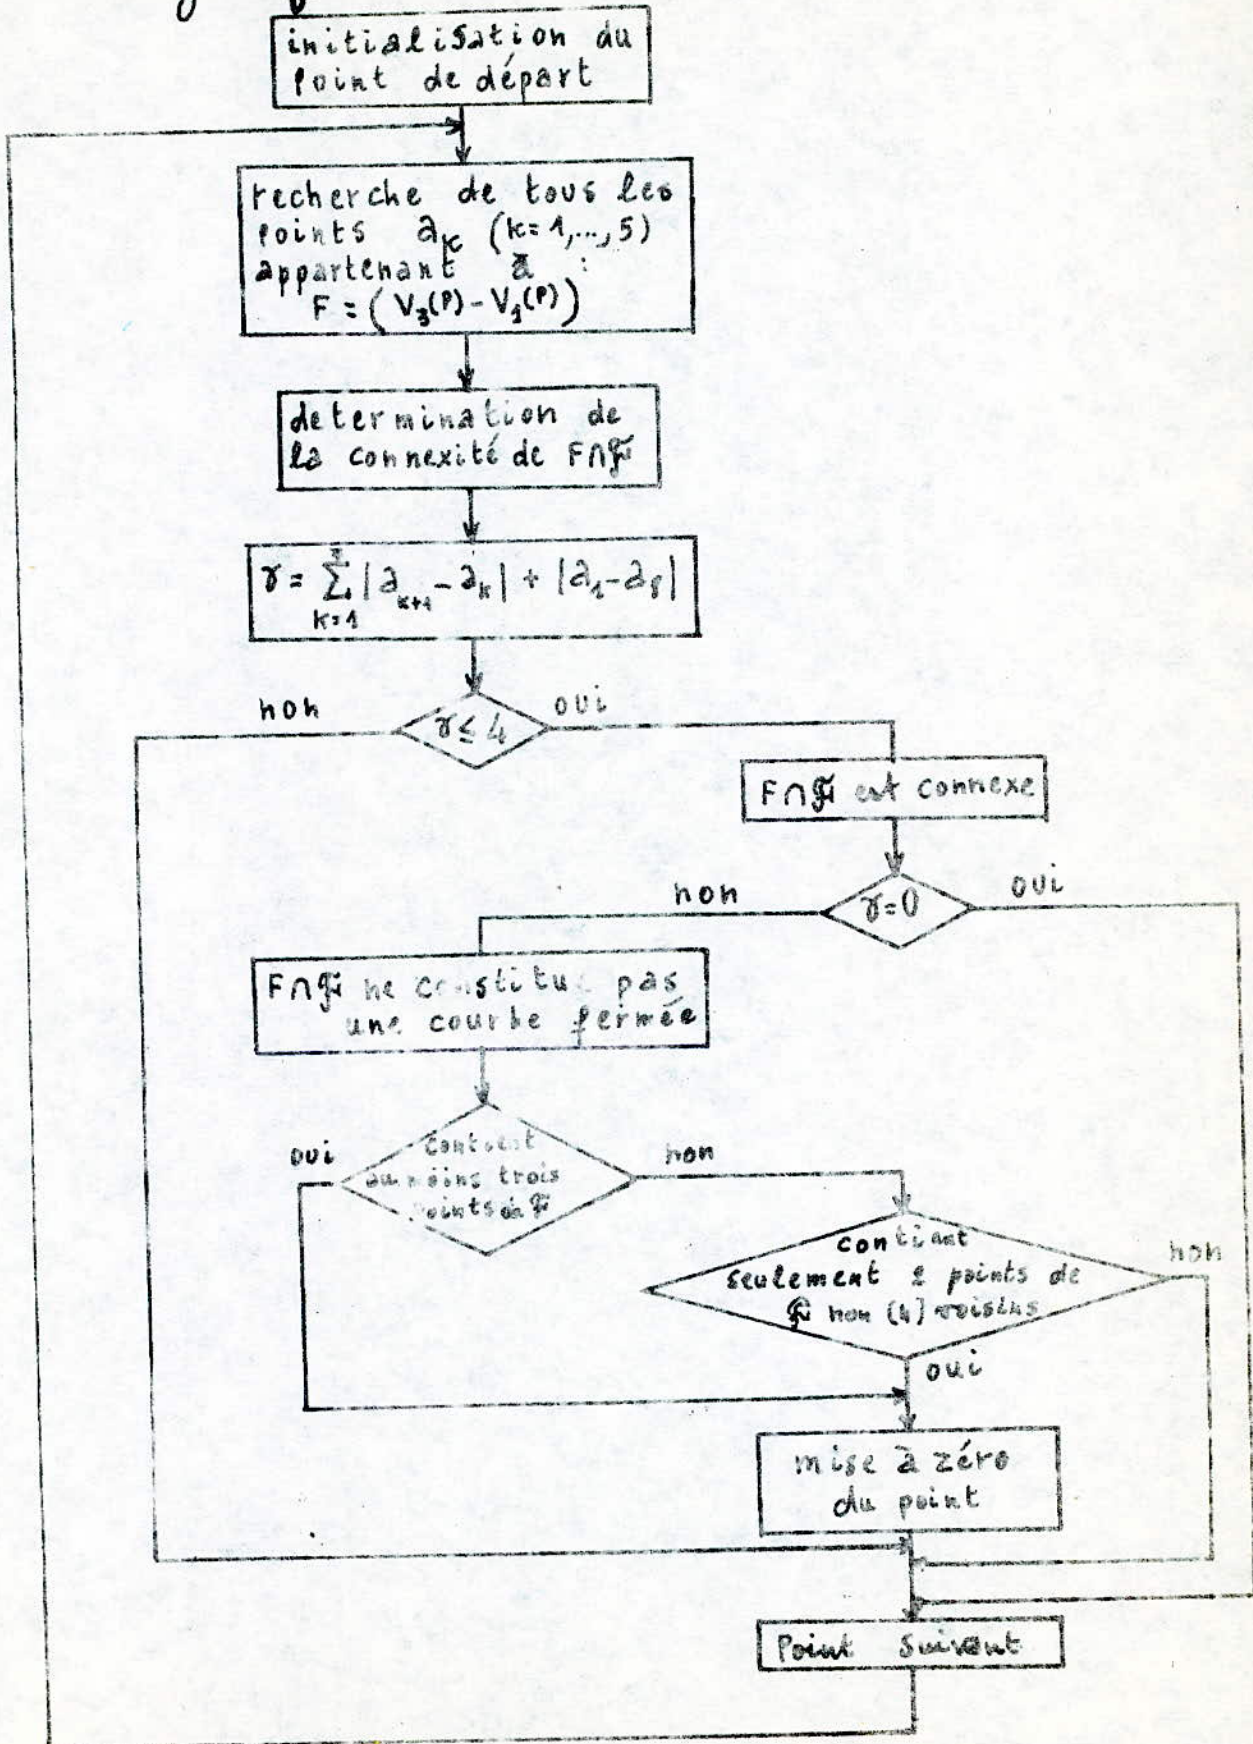 initialisation du
point de départ
recherche de tous les
points a_k (k=1,...,5)
appartenant à :
F = (V_3(P) - V_1(P))
determination de
la connexité de F∩
γ = Σ |a_{k+1} - a_k| + |a_1 - a_8|
k=1
non
γ ≤ 4
oui
F∩ est connexe
non
γ=0
oui
F∩ ne constitue pas
une courbe fermée
oui
contient
au moins trois
points de
non
contiant
seulement 2 points de
non (4) voisins
non
oui
mise à zéro
du point
Point suivant